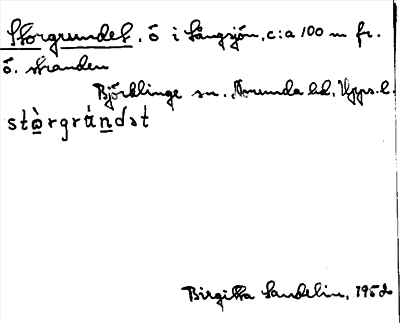 Storgrundet, ö i Långsjön, c:a 100 m fr.
ö. stranden
Björklinge sn. Norunda hd, Upps. l.
stɷ̀rgrúndət
Birgitta Sandelin, 1952